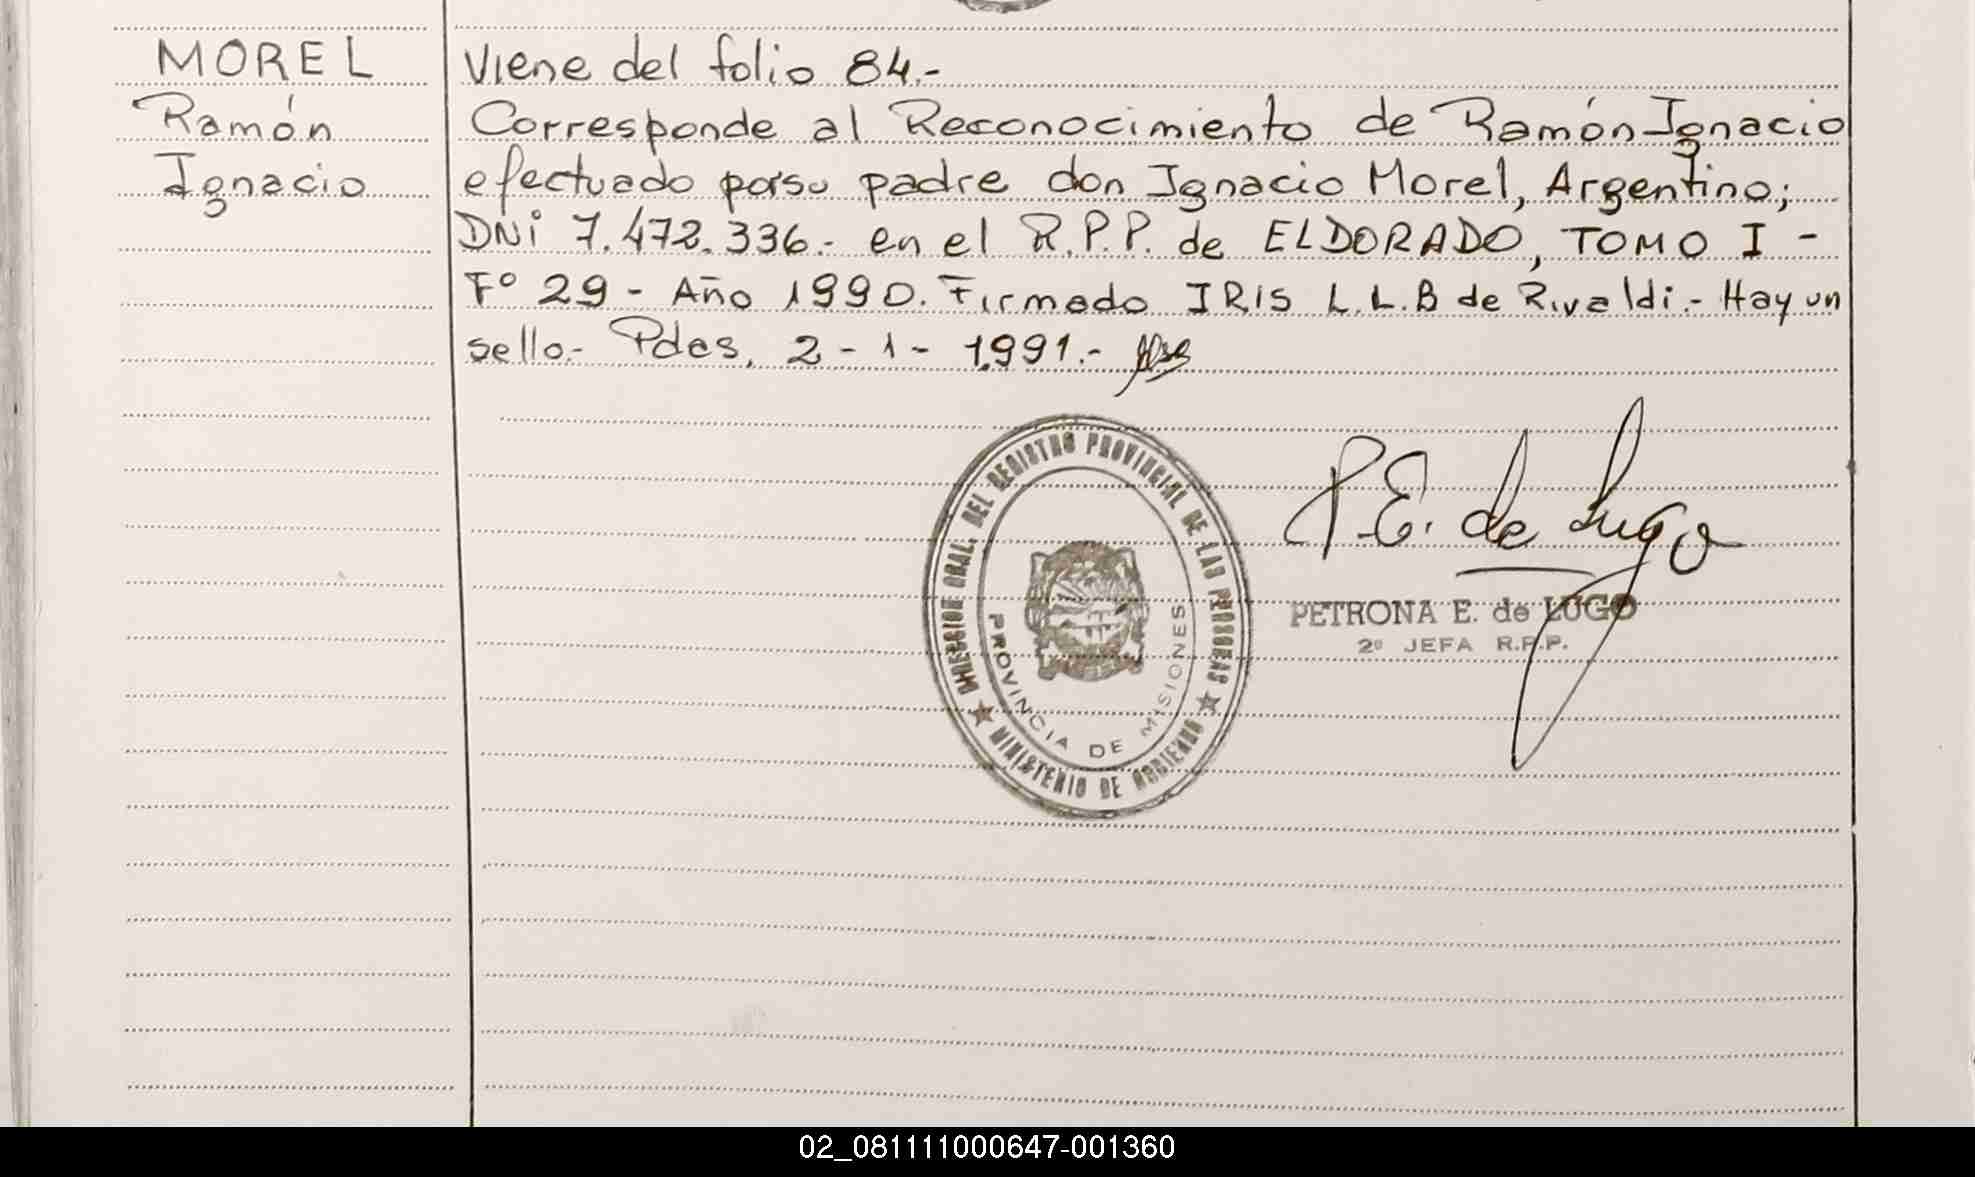 MOREL
Ramón
Ignacio
Viene del folio 84.-
Corresponde al Reconocimiento de Ramón Ignacio
efectuado por su padre don Ignacio Morel, Argentino;
DNi 7.472.336.- en el R.P.P. de ELDORADO, TOMO I -
Fº 29 - Año 1990. Firmado IRIS L.L.B de Rivaldi.- Hay un
sello.- Pdas, 2 - 1 - 1991.-
DIRECCION GRAL. DEL REGISTRO PROVINCIAL DE LAS PERSONAS
MINISTERIO DE GOBIERNO
PROVINCIA DE MISIONES
P.E. de Lugo
PETRONA E. de LUGO
2º JEFA R.P.P.
02_081111000647-001360